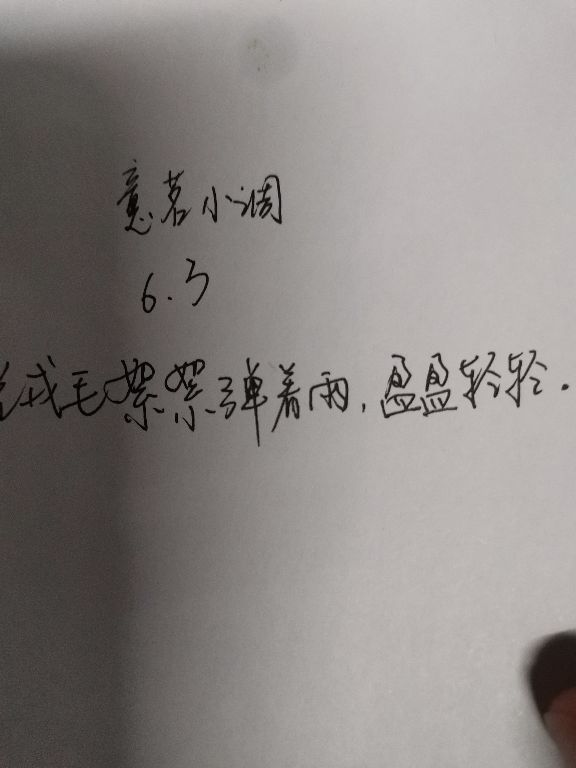 意茗小调
6.3
戎毛絮絮弹着雨，盈盈轻轻.